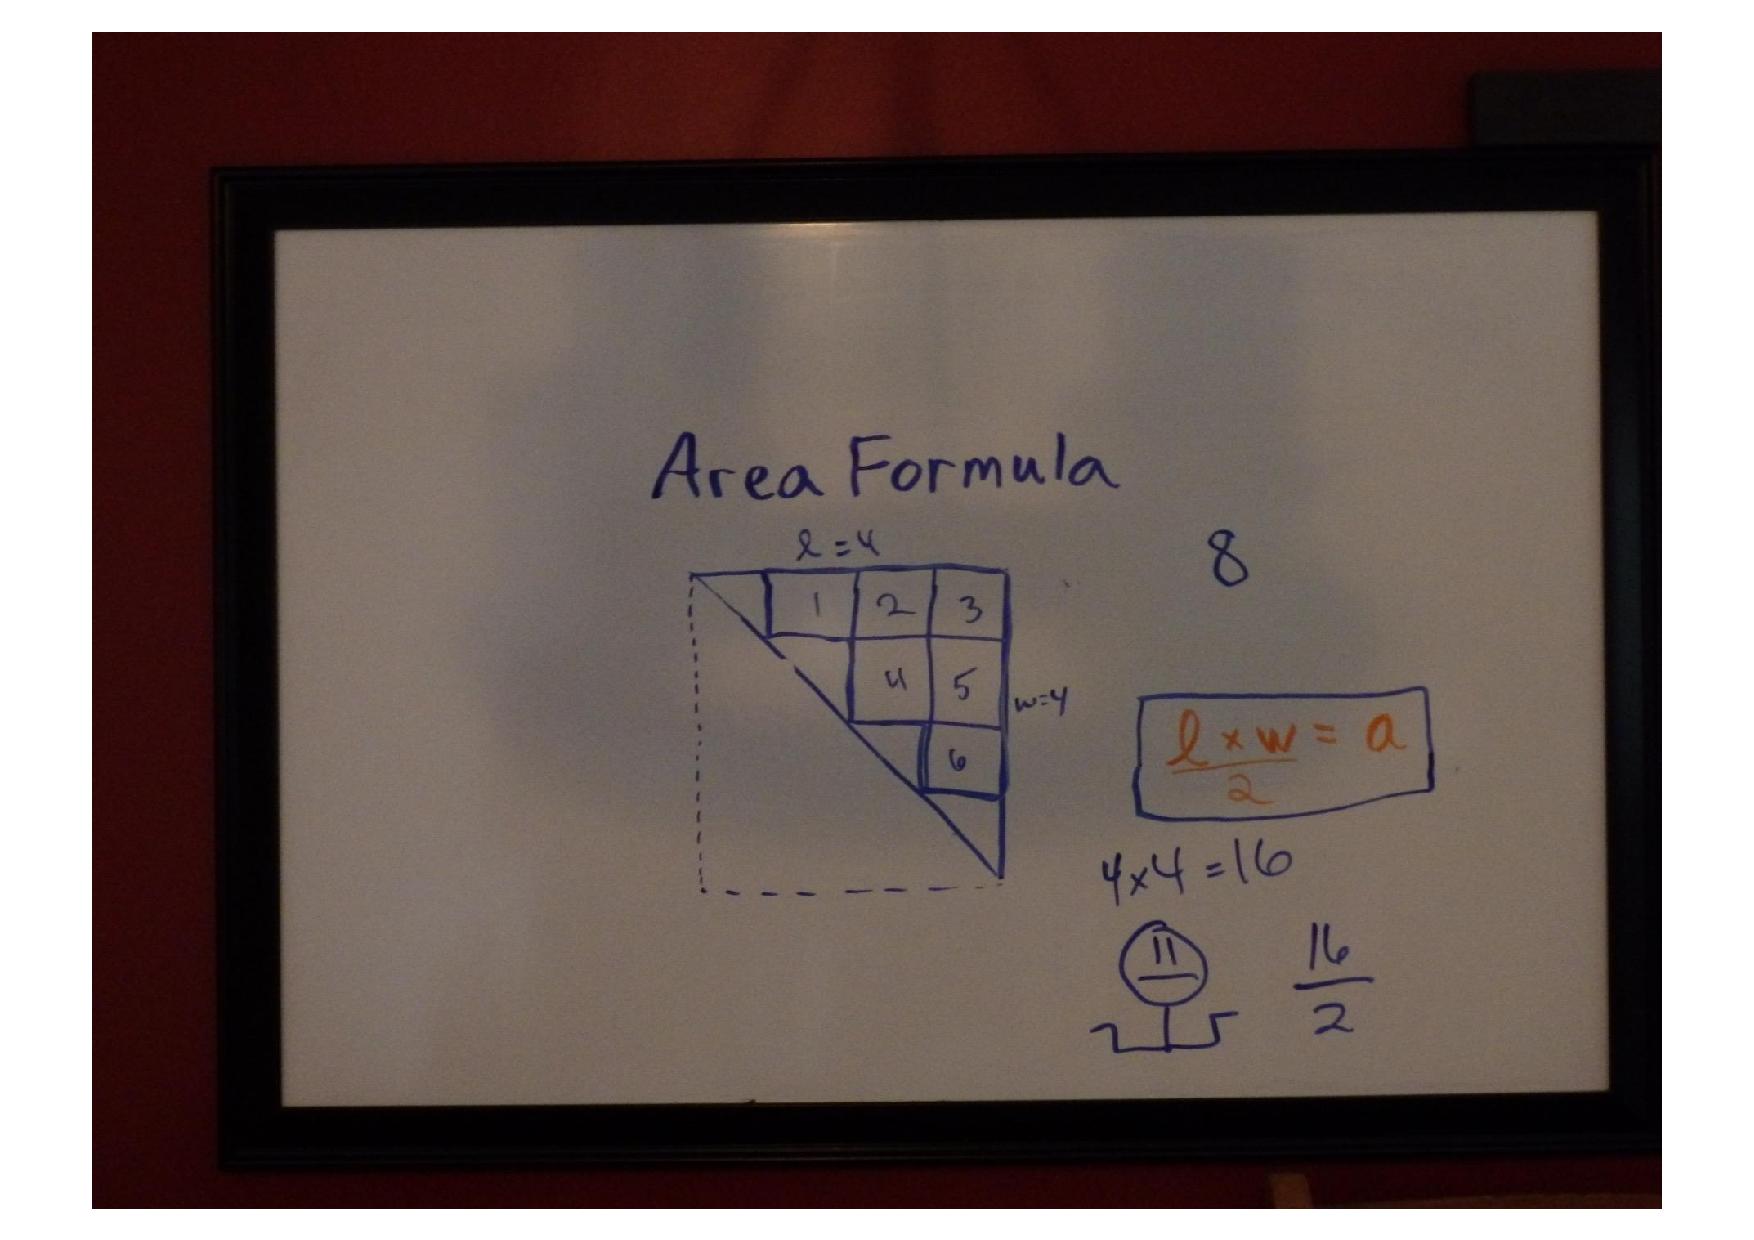 Area Formula
l = 4
8
1 2 3
4 5
w=4
6
l x w = a
2
4x4 = 16
16
2